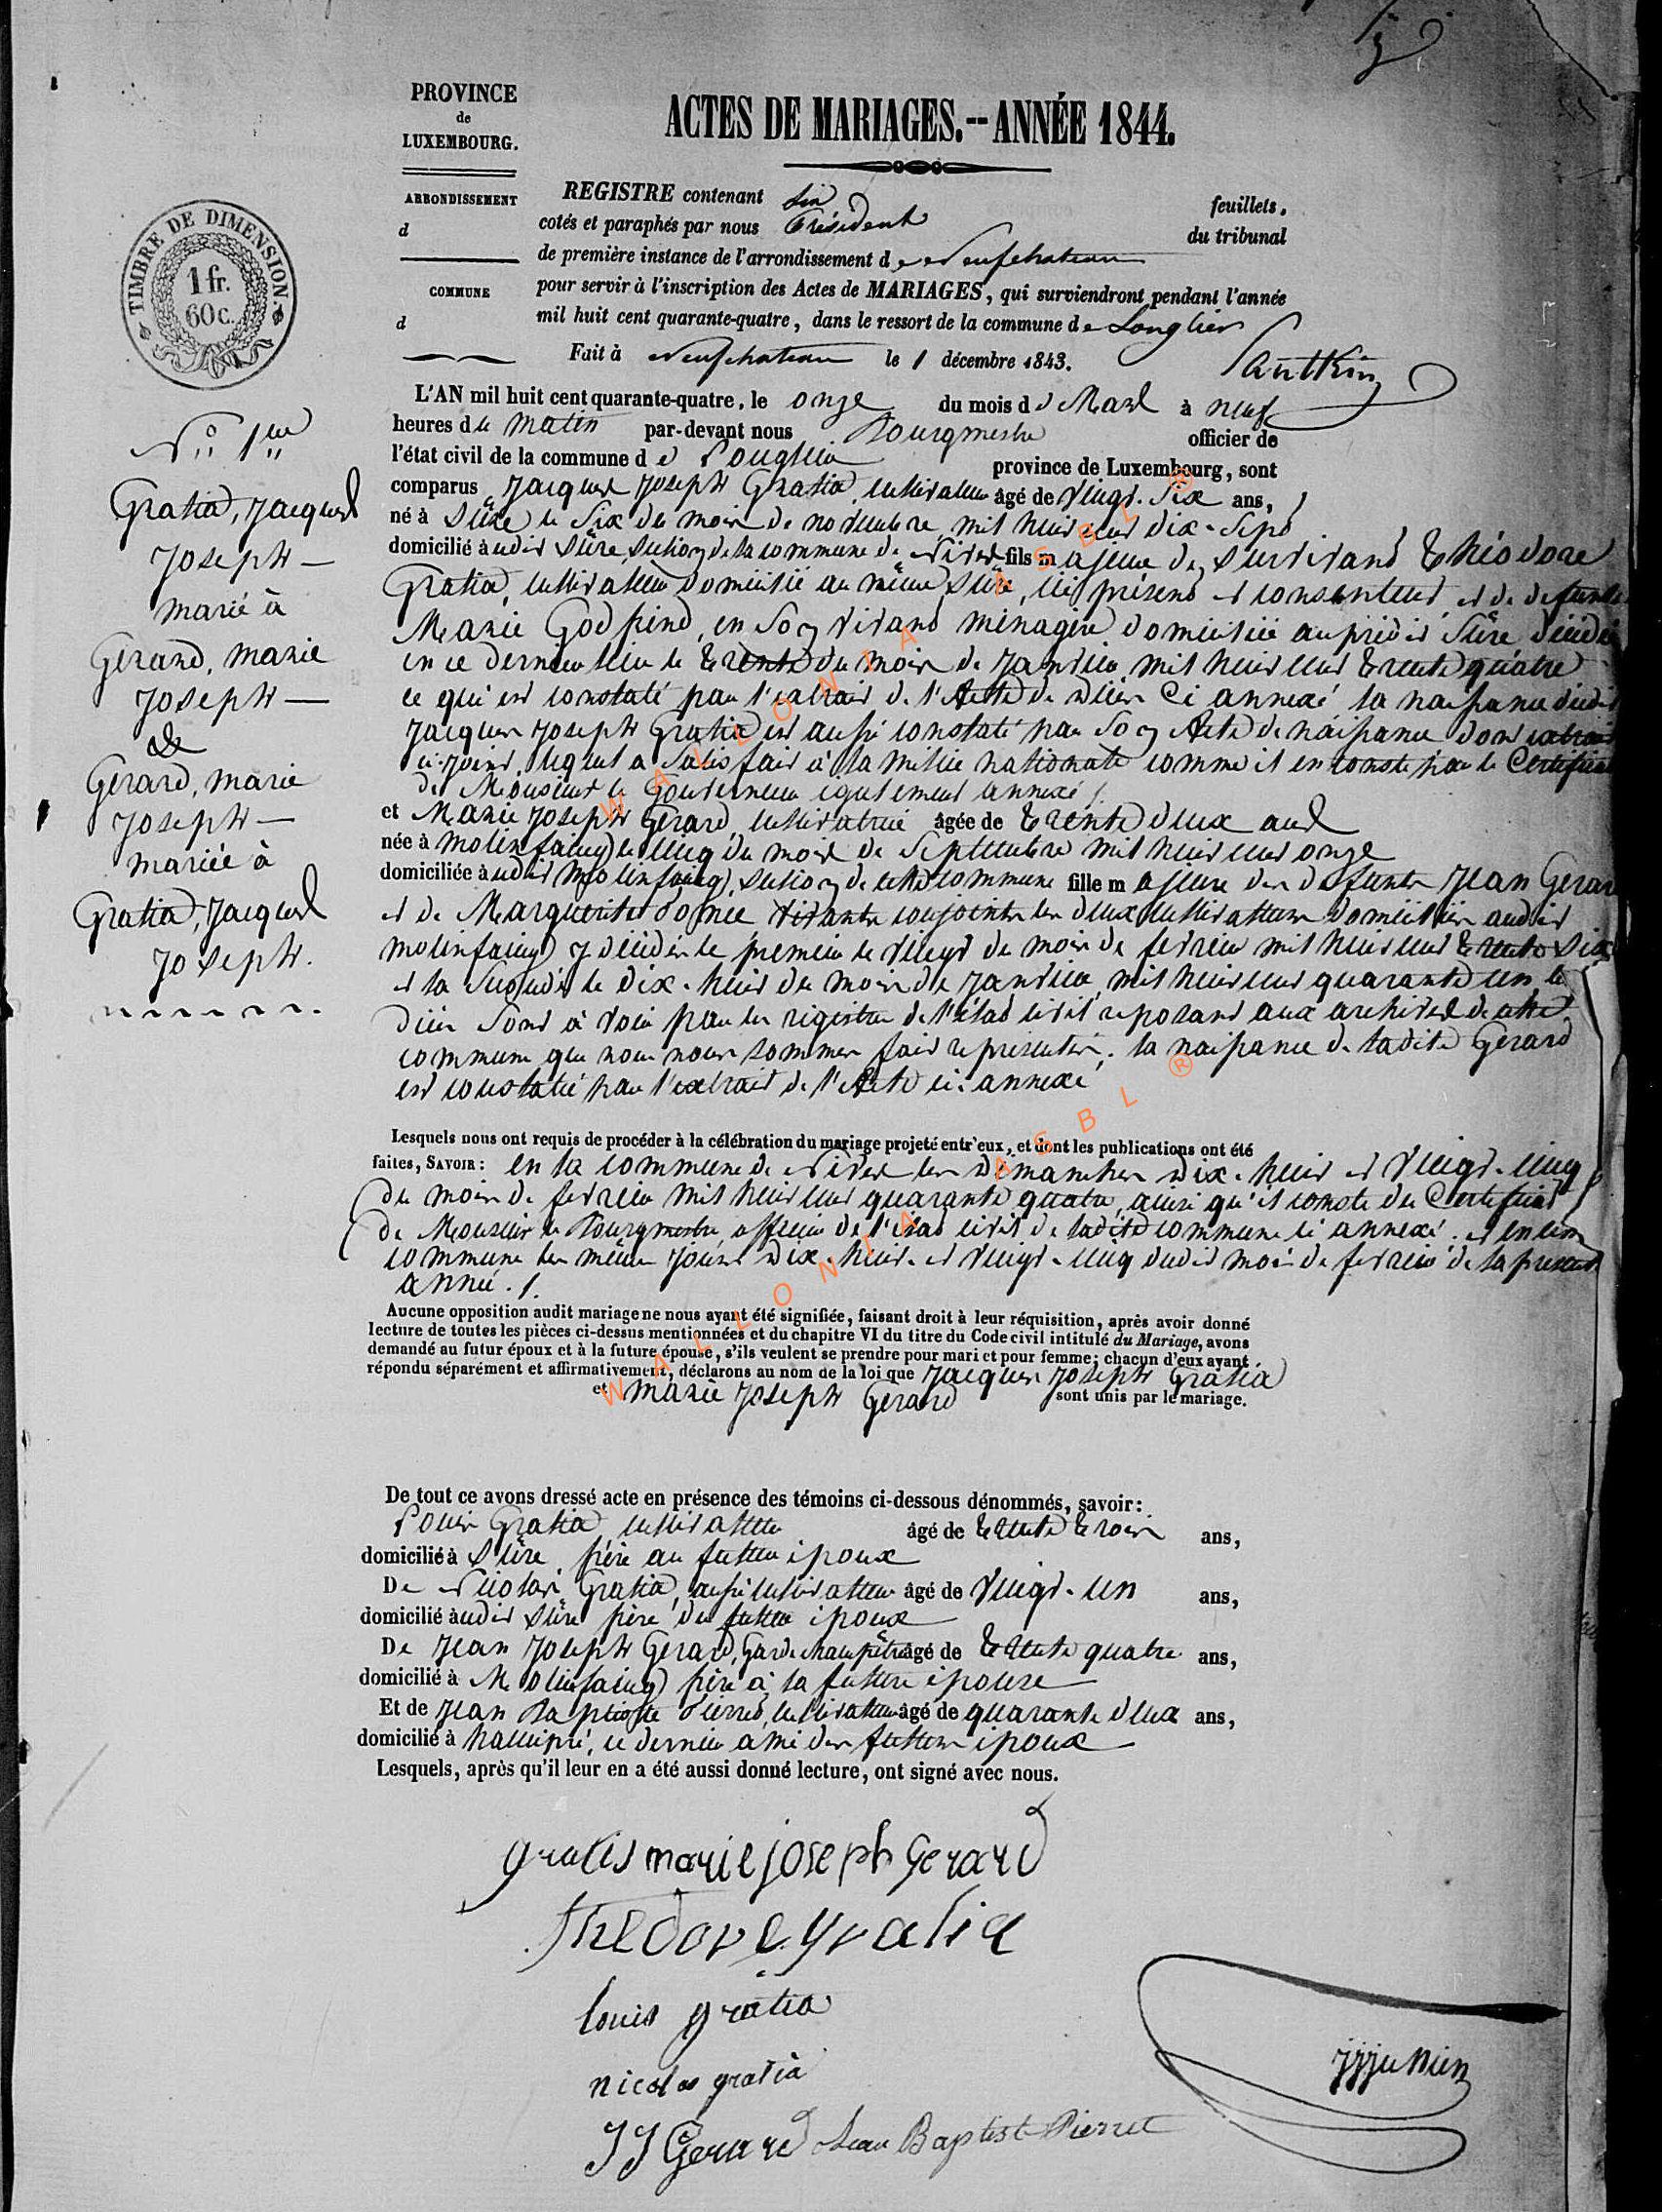 PROVINCE
de
LUXEMBOURG.
ACTES DE MARIAGES.-- ANNÉE 1844.
ARRONDISSEMENT
d
COMMUNE
d
TIMBRE DE DIMENSION.
1 fr.
60 c.
REGISTRE contenant six feuillets,
cotés et paraphés par nous Président du tribunal
de première instance de l'arrondissement de Neufchateau
pour servir à l'inscription des Actes de MARIAGES, qui surviendront pendant l'année
mil huit cent quarante-quatre, dans le ressort de la commune de Longlier
Fait à Neufchateau le 1 décembre 1843.
N.° 1er
Gratia, Jacques
Joseph —
marié à
Gerard, marie
Joseph —
&
Gerard, marie
Joseph —
mariée à
Gratia, Jacques
Joseph.
L'AN mil huit cent quarante-quatre, le onze du mois de Mars à neuf
heures du matin par-devant nous Bourgmestre officier de
l'état civil de la commune de Longlier province de Luxembourg, sont
comparus Jacques Joseph Gratia, cultivateur âgé de vingt-six ans,
né à Sûre le six du mois de novembre mil huit cent dix-sept
domicilié audit Sûre, section de la commune de Nives fils majeur du survivant Théodore
Gratia, cultivateur domicilié au même Sûre, ici présent et consentant, et de defunte
Marie Godfrind, en son vivant ménagère domiciliée au prédit Sûre décédée
en ce dernier lieu le trente du mois de Janvier mil huit cent trente quatre
ce qui est constaté par l'extrait de l'Acte de décès ci annexé, la naissance dudit
Jacques Joseph Gratia est aussi constaté par son Acte de naissance dont extrait
ci-joint, lequel a satisfait à la milice nationale comme il en conste par le Certificat
de Monsieur le Gouverneur également annexé
et Marie Joseph Gerard, cultivatrice âgée de trente deux ans
née à Molinfaing le cinq du mois de Septembre mil huit cent onze
domiciliée audit Molinfaing, section de cette commune fille majeure des defunts Jean Gerard
et de Marguerite vivants conjoints les deux cultivateurs domiciliés audit
Molinfaing y décédés le premier le vingt du mois de fevrier mil huit cent trente six
et la seconde le dix-huit du mois de Janvier mil huit cent quarante un, les
décès sont à voir par les registres de l'état civil reposant aux archives de cette
commune que nous nous sommes fait représenter. la naissance de ladite Gerard
est constatée par l'extrait de l'Acte ci-annexé
Lesquels nous ont requis de procéder à la célébration du mariage projeté entr'eux, et dont les publications ont été
faites, SAVOIR: en la commune de Nives les Dimanches Dix-huit et vingt-cinq
du mois de fevrier mil huit cent quarante quatre, ainsi qu'il conste du Certificat
de Monsieur le Bourgmestre officier de l'état civil de ladite commune ci annexé. et en cette
commune les mêmes jours Dix-huit et vingt-cinq dudit mois de fevrier de la présente
année.
Aucune opposition audit mariage ne nous ayant été signifiée, faisant droit à leur réquisition, après avoir donné
lecture de toutes les pièces ci-dessus mentionnées et du chapitre VI du titre du Code civil intitulé du Mariage, avons
demandé au futur époux et à la future épouse, s'ils veulent se prendre pour mari et pour femme; chacun d'eux ayant
répondu séparément et affirmativement, déclarons au nom de la loi que Jacques Joseph Gratia
et Marie Joseph Gerard sont unis par le mariage.
De tout ce avons dressé acte en présence des témoins ci-dessous dénommés, savoir:
Louis Gratia, cultivateur âgé de trente trois ans,
domicilié à Sûre, frère au futur époux
De Nicolas Gratia, aussi cultivateur âgé de vingt-un ans,
domicilié audit Sûre frère du futur époux
De Jean Joseph Gerard, Garde champêtre âgé de trente quatre ans,
domicilié à Molinfaing frère à la future épouse
Et de Jean Baptiste Pierret, cultivateur âgé de quarante deux ans,
domicilié à hamipré, ce dernier ami des futurs époux
Lesquels, après qu'il leur en a été aussi donné lecture, ont signé avec nous.
marie joseph Gerard
thedore gratia
louis gratia
nicolas gratia
J J Gerard Jean Baptist Pierret
WALLONIA ASBL ®
WALLONIA ASBL ®